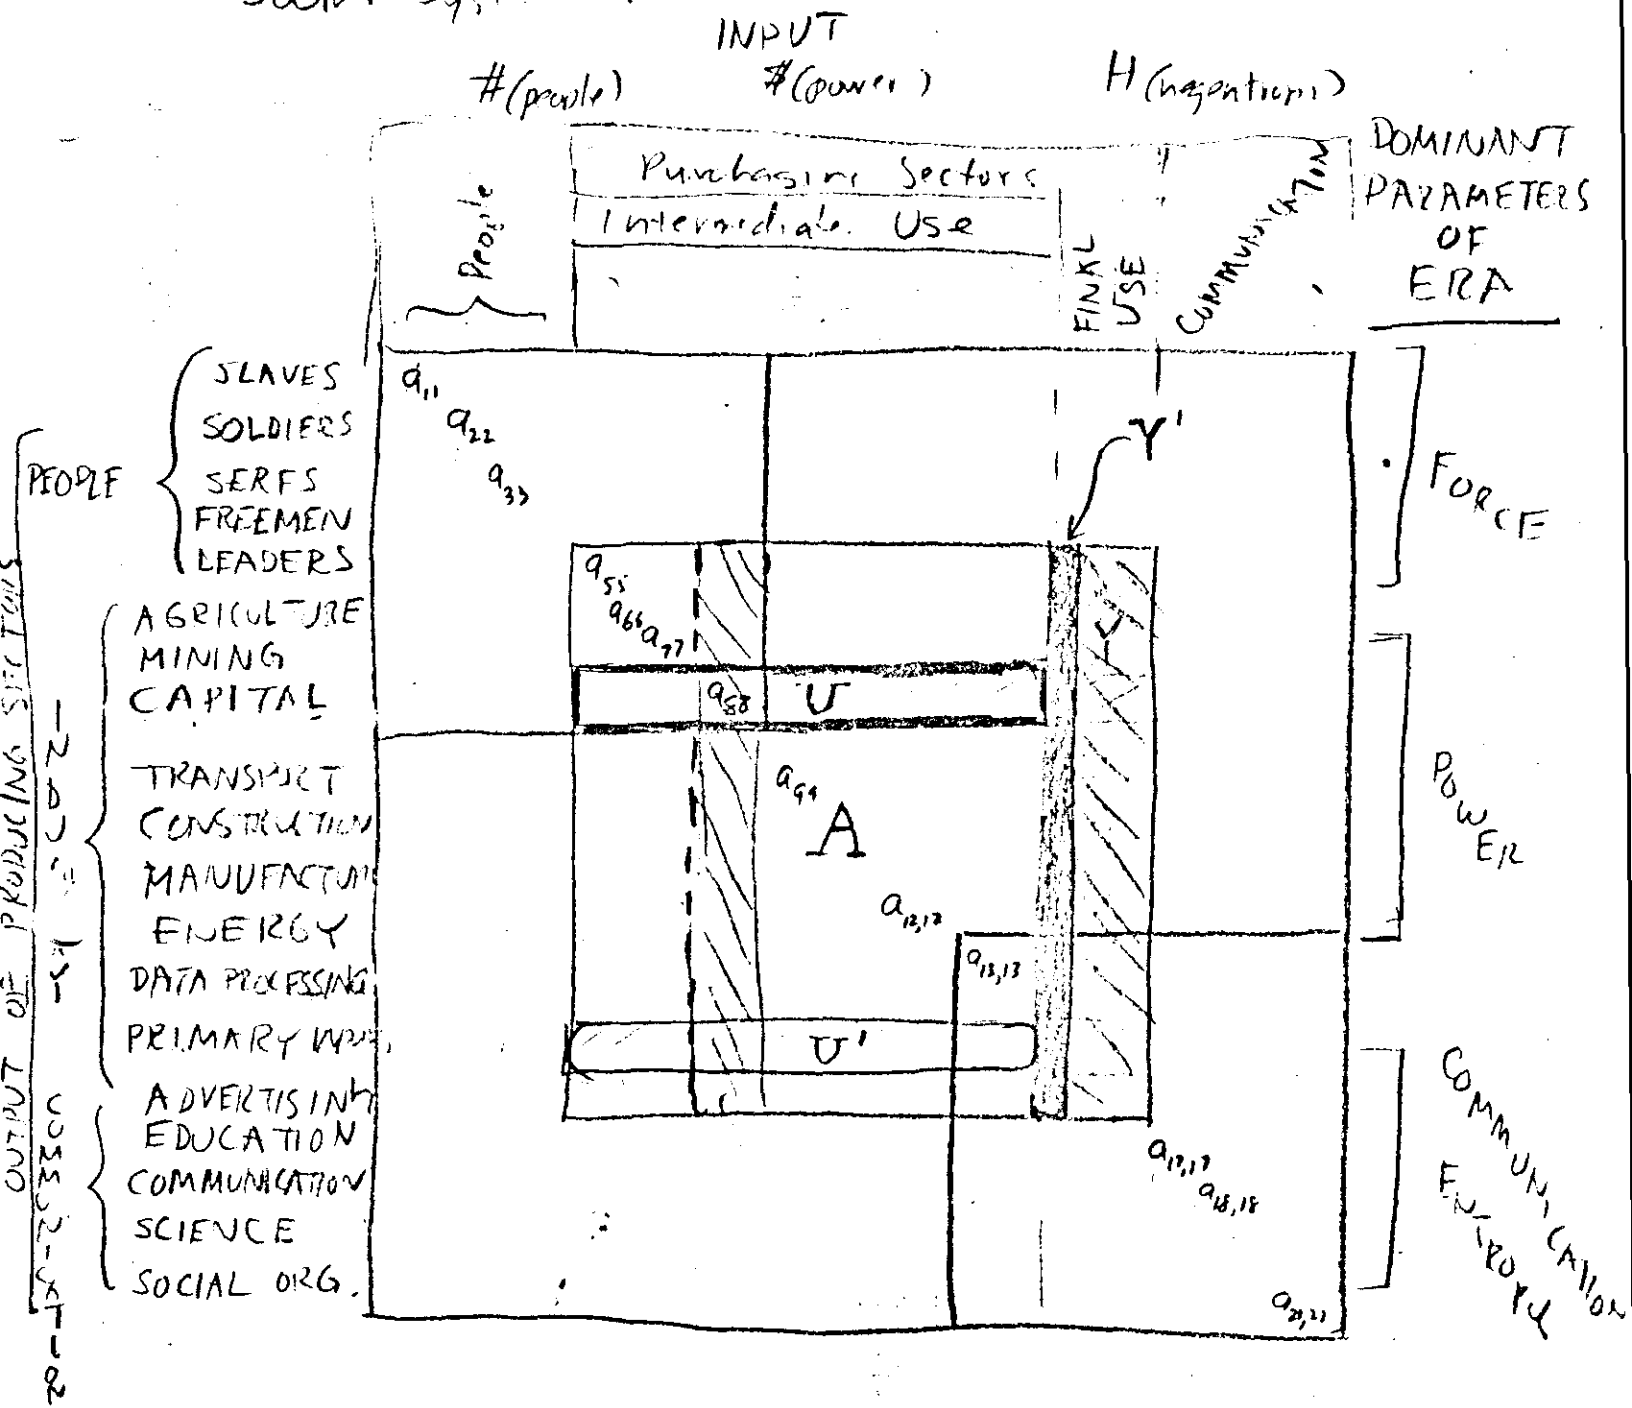 INPUT
#(people) $(power) H(negentropy)
DOMINANT
PARAMETERS
OF
ERA
Purchasing Sectors
Intermediate Use
People
FINAL
USE
COMMUNICATION
OUTPUT OF PRODUCING SECTORS
PEOPLE
SLAVES
SOLDIERS
SERFS
FREEMEN
LEADERS
INDUSTRY
AGRICULTURE
MINING
CAPITAL
TRANSPORT
CONSTRUCTION
MANUFACTUR
ENERGY
DATA PROCESSING
PRIMARY
COMMUNICATION
ADVERTISING
EDUCATION
COMMUNICATION
SCIENCE
SOCIAL ORG.
a11
a22
a33
Y'
a55
a66
a77
a88
U
Y
a99
A
a12,12
a13,13
U'
a17,17
a18,18
FORCE
POWER
COMMUNICATION
ENTROPY